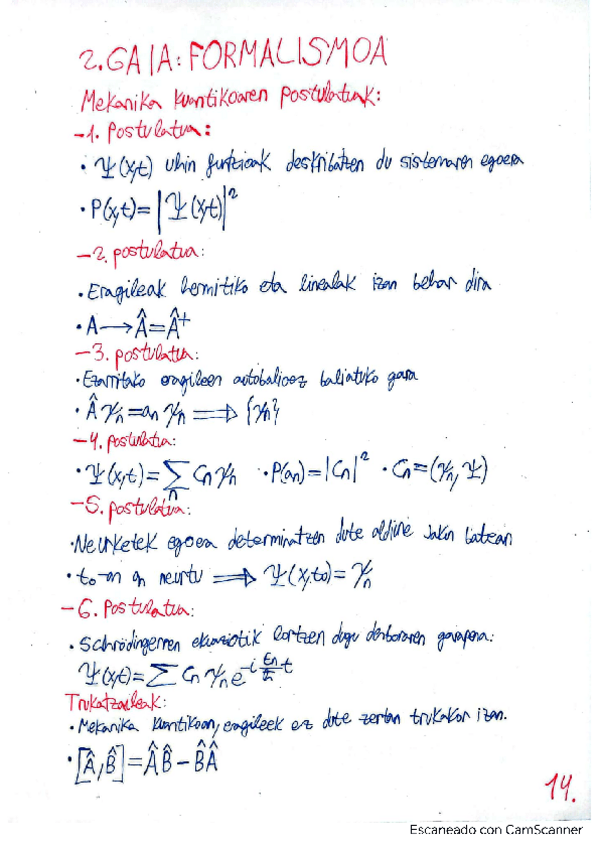 2. GAIA: FORMALISMOA
Mekanika kuantikoaren postulatuak:
-1. Postulatua:
• Ψ(x,t) uhin funtzioak deskribatzen du sistemaren egoera
• P(x,t) = |Ψ(x,t)|²
-2. postulatua:
• Eragileak hermitiko eta linealak izan behar dira
• A → Â = Â⁺
-3. postulatua:
• Ezarritako eragileen autobalioez baliatuko gara
• Â ψn = an ψn ⟹ {ψn}
-4. postulatua:
• Ψ(x,t) = ∑n Cn ψn • P(an) = |Cn|² • Cn = (ψn, Ψ)
-5. postulatua:
• Neurketek egoera determinatzen dute aldiune jakin batean
• to-an an neurtu ⟹ Ψ(x,to) = ψn
-6. Postulatua:
• Schrödingerren ekuaziotik lortzen dugu denboraren garapena:
Ψ(x,t) = ∑ Cn ψn e^(-i En/ħ t)
Trukatzaileak:
• Mekanika kuantikoan, eragileek ez dute zertan trukakor izan.
• [Â, B̂] = ÂB̂ - B̂Â
14.
Escaneado con CamScanner